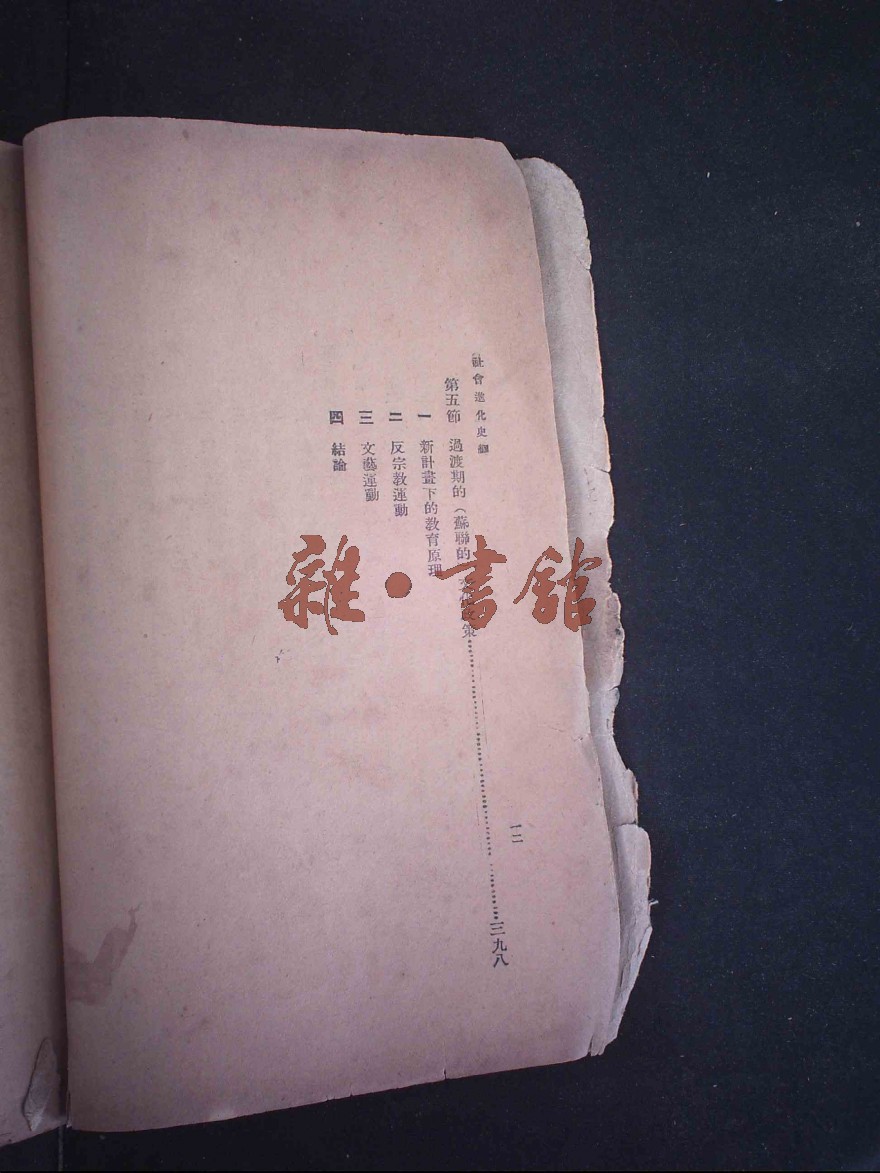 社會進化史
第五節 過渡期的（蘇聯的
策⋯⋯⋯⋯⋯⋯三九八
一 新計畫下的教育原理
二 反宗教運動
三 文藝運動
四 結論
一二
雜·書館